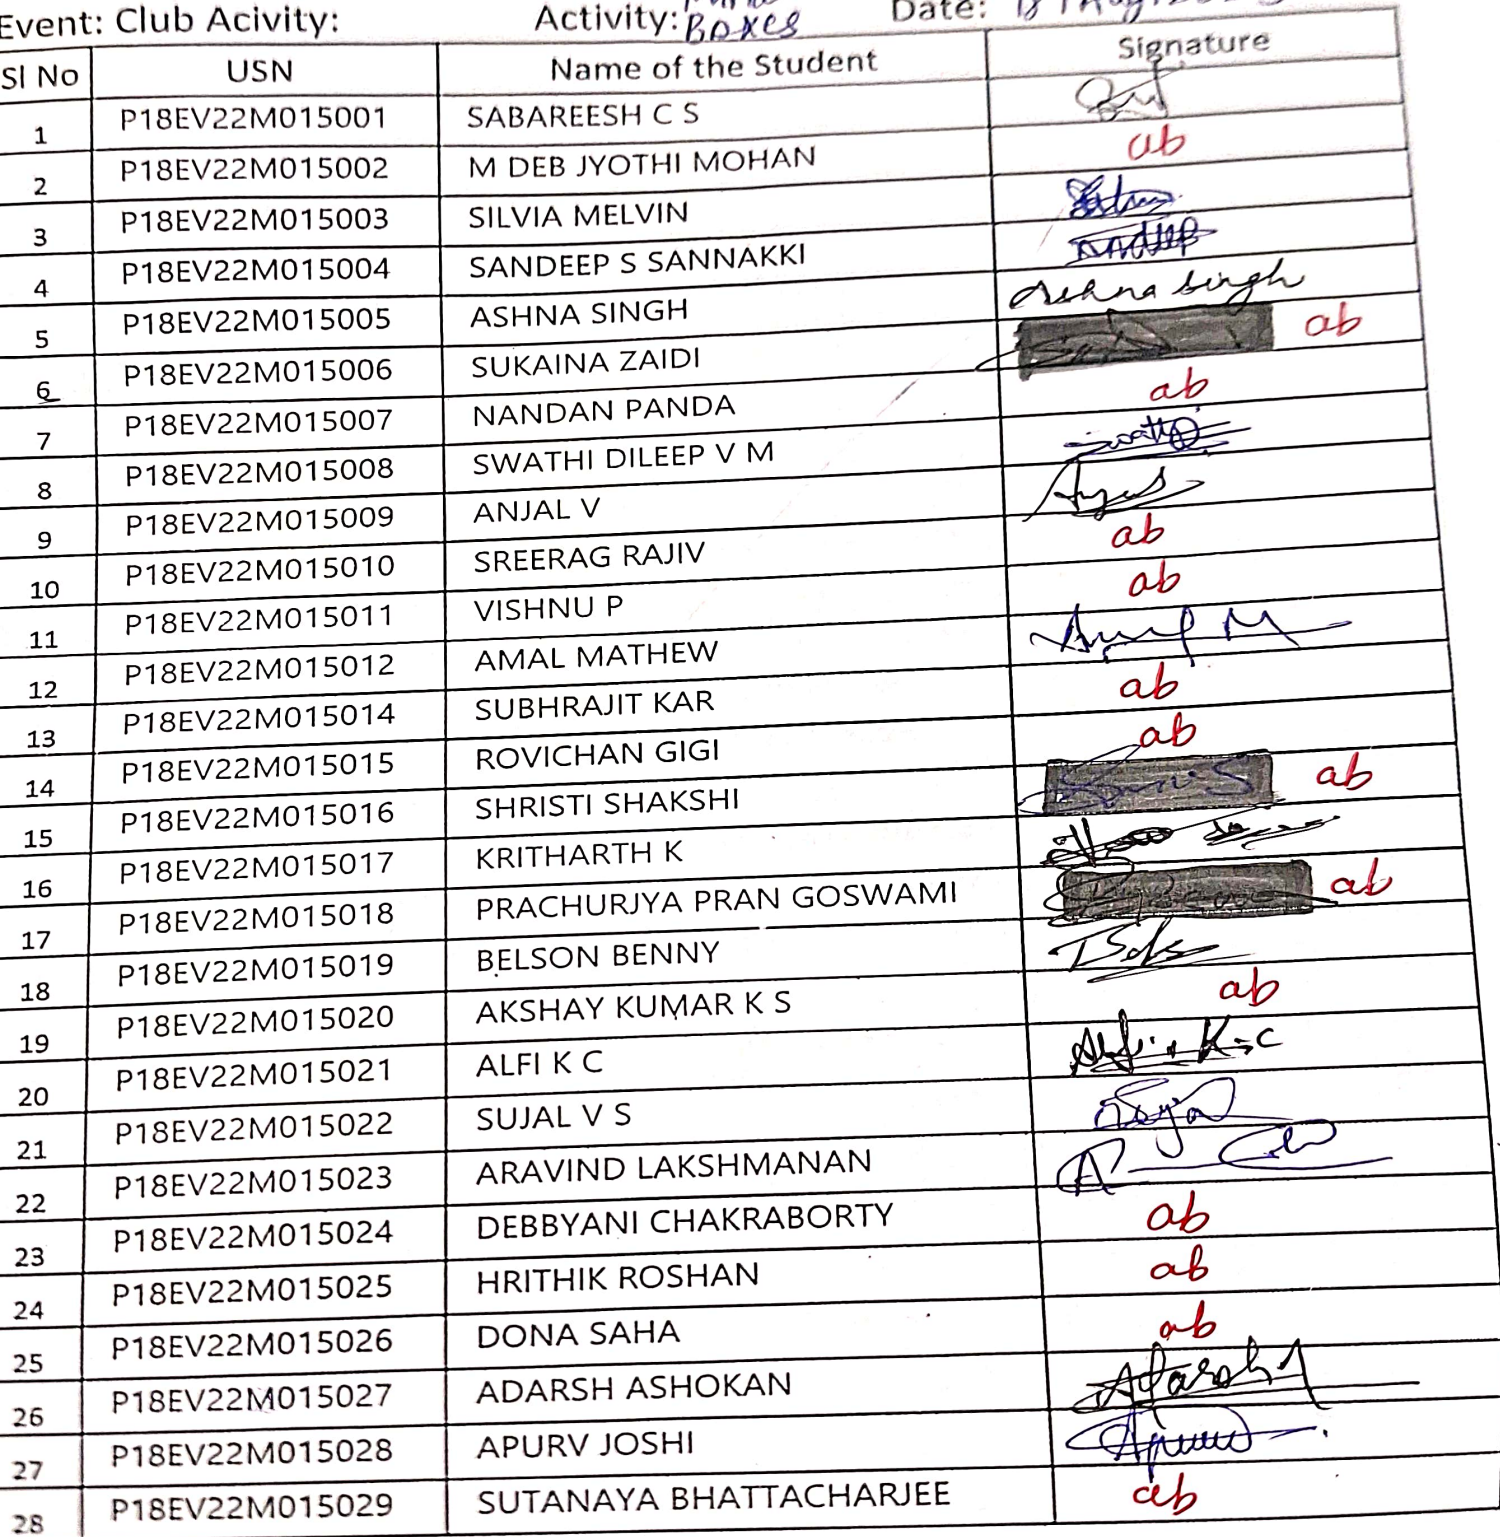 Event: Club Acivity: Activity: Boxes Date:
Sl No USN Name of the Student Signature
1 P18EV22M015001 SABAREESH C S
2 P18EV22M015002 M DEB JYOTHI MOHAN ab
3 P18EV22M015003 SILVIA MELVIN
4 P18EV22M015004 SANDEEP S SANNAKKI
5 P18EV22M015005 ASHNA SINGH Ashna Singh
6 P18EV22M015006 SUKAINA ZAIDI ab
7 P18EV22M015007 NANDAN PANDA ab
8 P18EV22M015008 SWATHI DILEEP V M
9 P18EV22M015009 ANJAL V
10 P18EV22M015010 SREERAG RAJIV ab
11 P18EV22M015011 VISHNU P ab
12 P18EV22M015012 AMAL MATHEW
13 P18EV22M015014 SUBHRAJIT KAR ab
14 P18EV22M015015 ROVICHAN GIGI ab
15 P18EV22M015016 SHRISTI SHAKSHI ab
16 P18EV22M015017 KRITHARTH K
17 P18EV22M015018 PRACHURJYA PRAN GOSWAMI ab
18 P18EV22M015019 BELSON BENNY
19 P18EV22M015020 AKSHAY KUMAR K S ab
20 P18EV22M015021 ALFI K C Alfi K C
21 P18EV22M015022 SUJAL V S
22 P18EV22M015023 ARAVIND LAKSHMANAN
23 P18EV22M015024 DEBBYANI CHAKRABORTY ab
24 P18EV22M015025 HRITHIK ROSHAN ab
25 P18EV22M015026 DONA SAHA ab
26 P18EV22M015027 ADARSH ASHOKAN Adarsh
27 P18EV22M015028 APURV JOSHI
28 P18EV22M015029 SUTANAYA BHATTACHARJEE ab